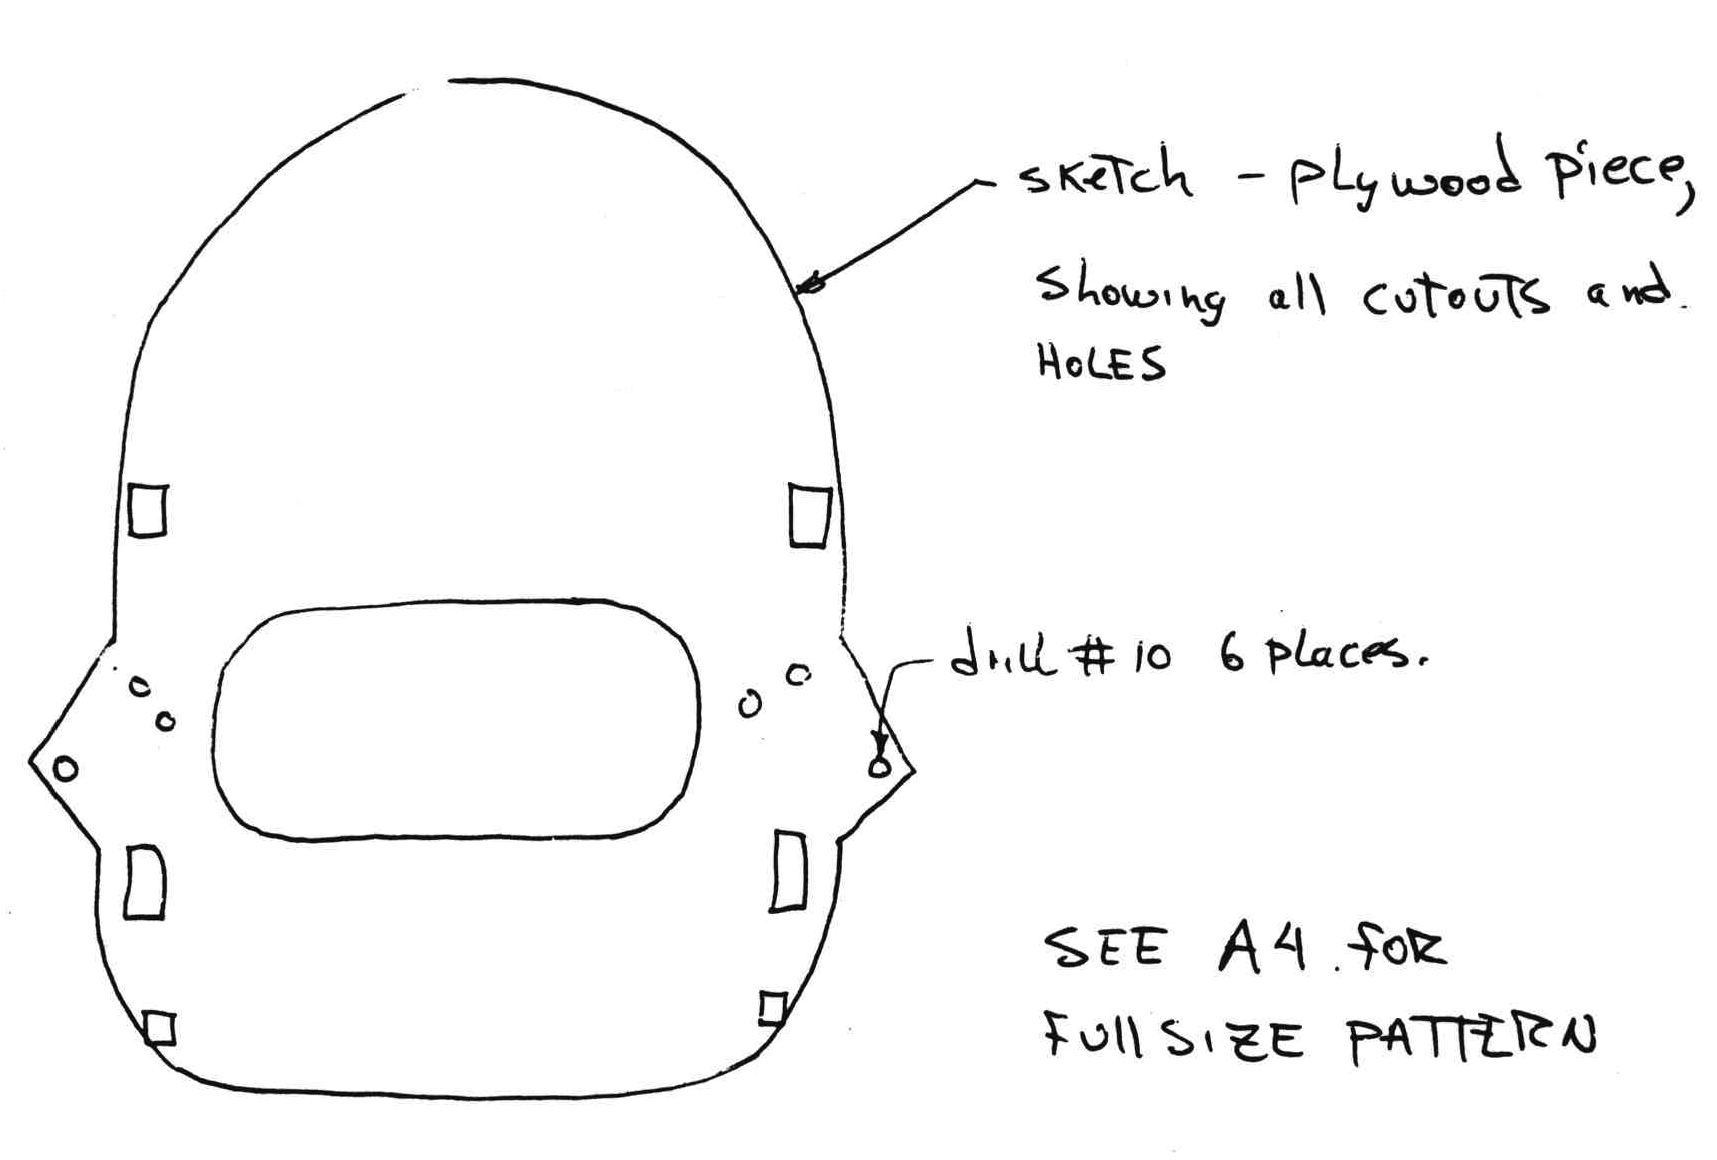 sketch - plywood piece,
showing all cutouts and.
HOLES
drill # 10 6 places.
SEE A4. FOR
FULLSIZE PATTERN